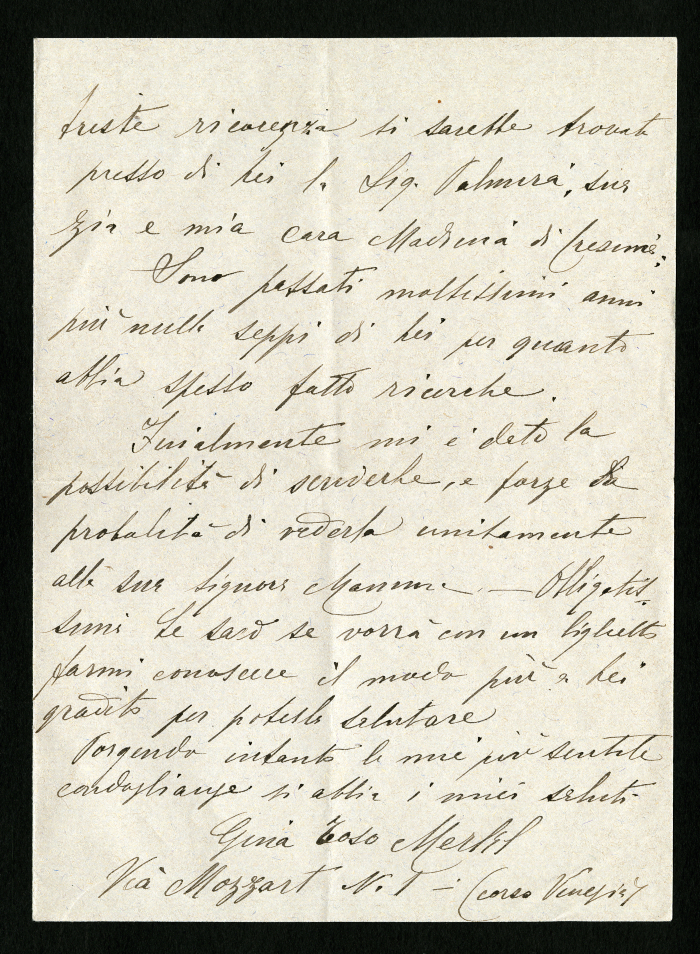 triste ricorenza si sarebbe trovata
presso di Lei la Sig. Palmira, sua
Zia e mia cara Madrina di Cresima.
Sono passati moltissimi anni
più nulla seppi di Lei per quanto
abbia spesso fatto ricerche.
Finalmente mi è dato la
possibilità di scriverle, e forze la
probalità di vederla unitamente
alla sua Signora Mamma — Obligatis-
sima Le sarò se vorrà con un biglietto
farmi conoscere il modo più a Lei
gradito per poterla salutare
Porgendo intanto le mie più sentite
condoglianze si abbia i miei saluti
Gina Toso Merkel
Via Mozzart N. 1 – (corso Venezia)